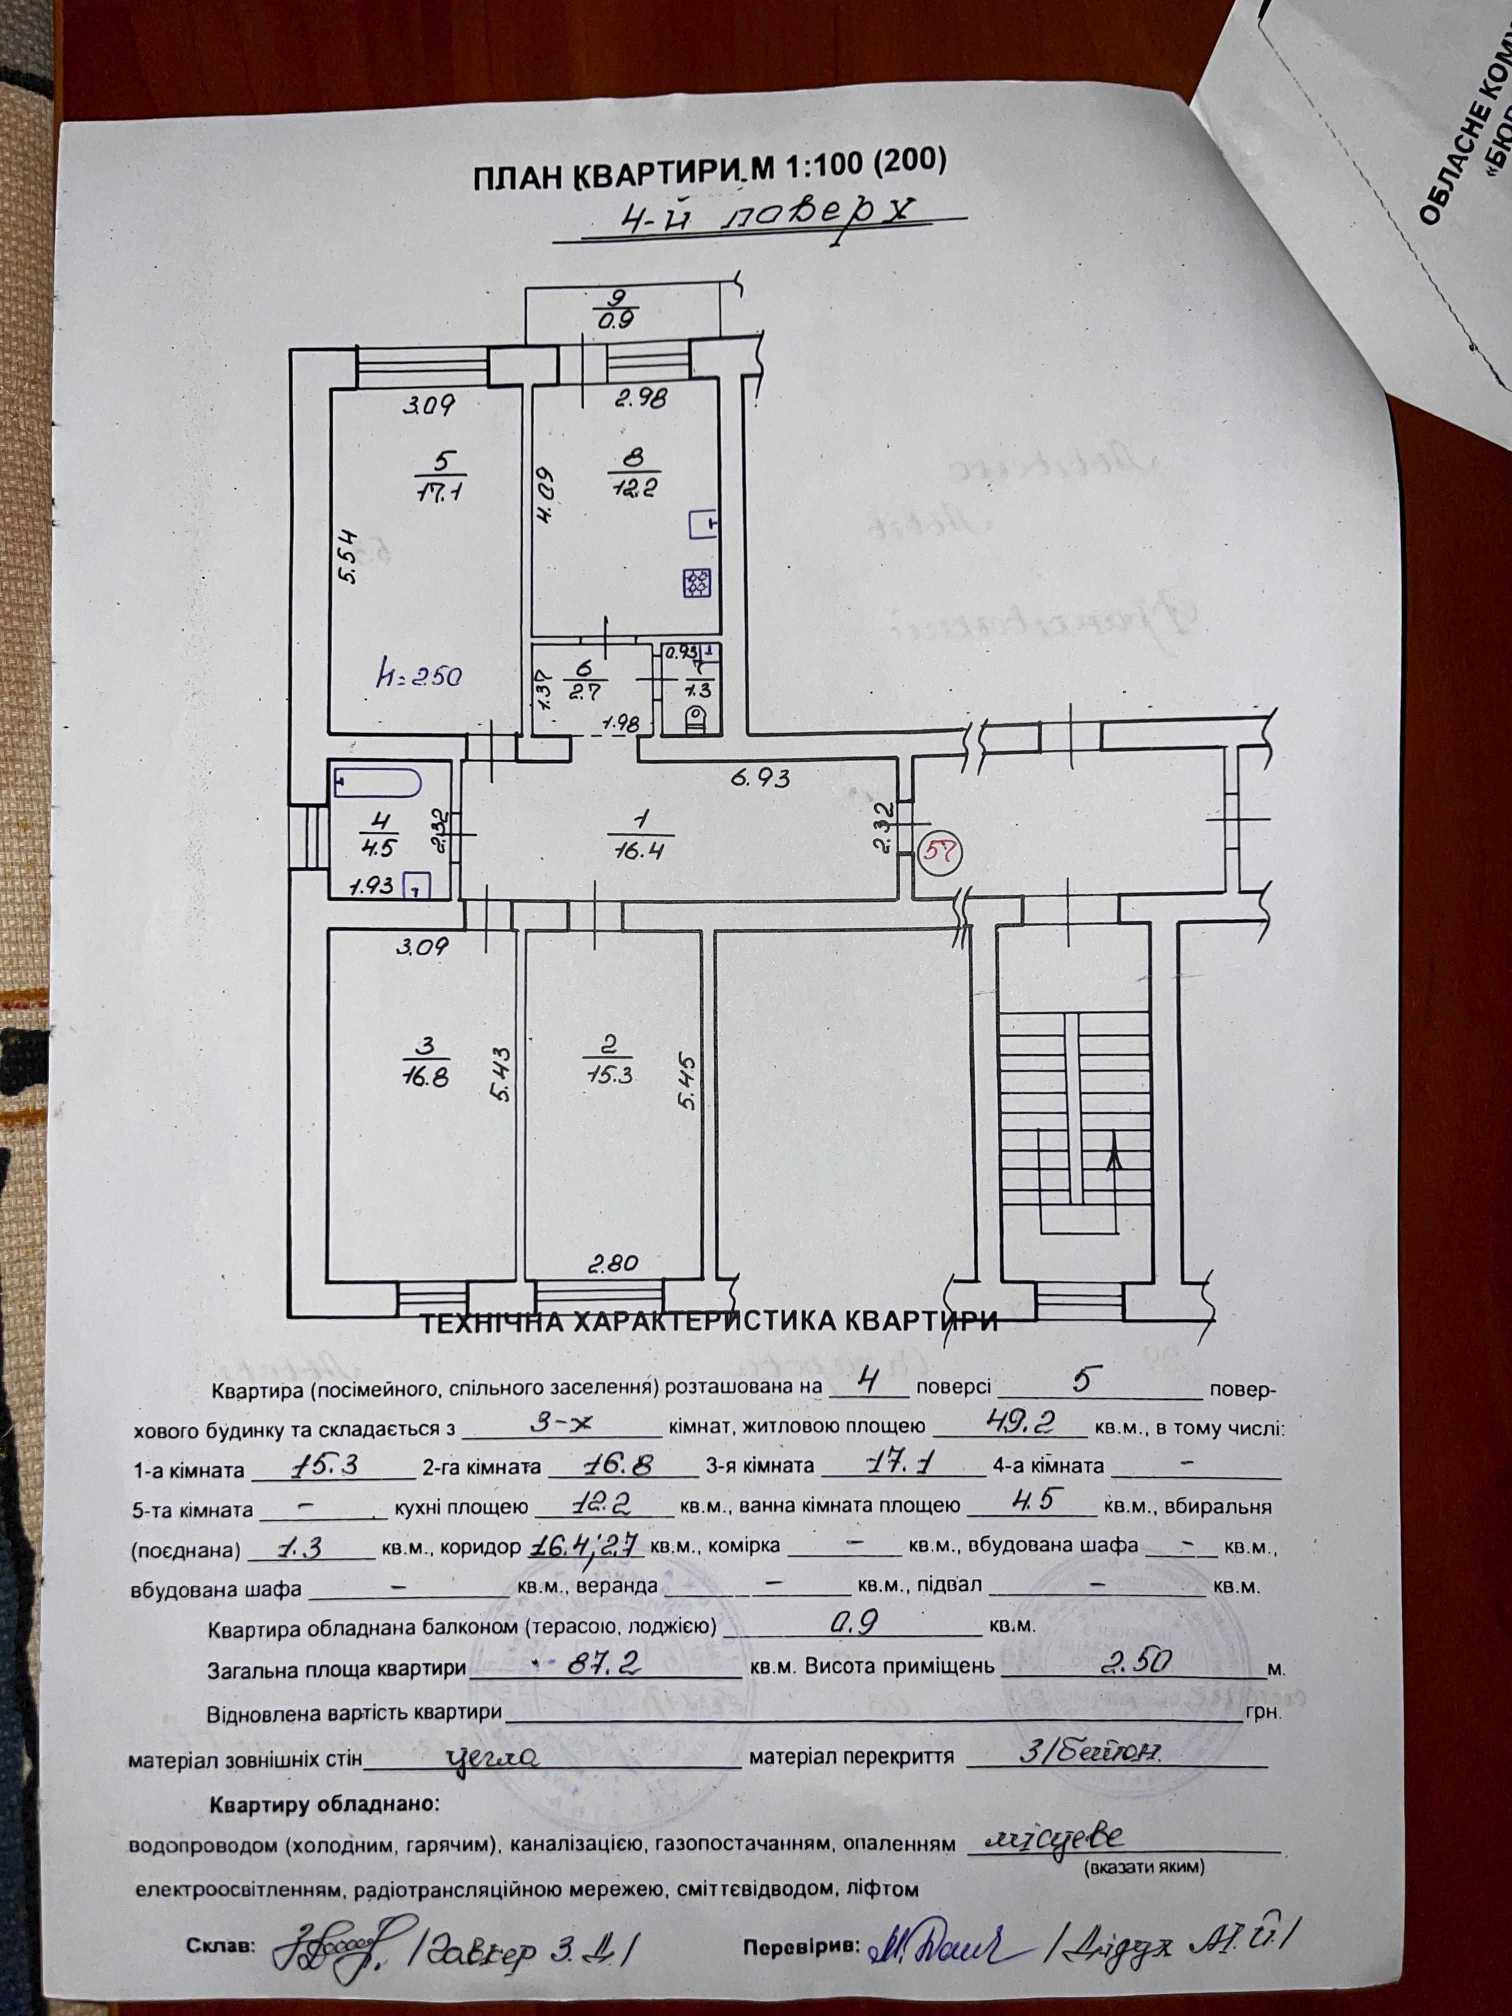 ОБЛАСНЕ КОМУ
«БЮР
ПЛАН КВАРТИРИ М 1:100 (200)
4-й поверх
9
0.9
3.09
2.98
5
17.1
8
12.2
4.09
5.54
h=2.50
0.93
6
2.7
7
1.3
1.37
1.98
6.93
4
4.5
2.32
1
16.4
2.32
57
1.93
3.09
3
16.8
5.43
2
15.3
5.45
2.80
ТЕХНІЧНА ХАРАКТЕРИСТИКА КВАРТИРИ
Квартира (посімейного, спільного заселення) розташована на 4 поверсі 5 повер-
хового будинку та складається з 3-х кімнат, житловою площею 49.2 кв.м., в тому числі:
1-а кімната 15.3 2-га кімната 16.8 3-я кімната 17.1 4-а кімната –
5-та кімната – кухні площею 12.2 кв.м., ванна кімната площею 4.5 кв.м., вбиральня
(поєднана) 1.3 кв.м., коридор 16.4; 2.7 кв.м., комірка – кв.м., вбудована шафа – кв.м.,
вбудована шафа – кв.м., веранда – кв.м., підвал – кв.м.
Квартира обладнана балконом (терасою, лоджією) 0.9 кв.м.
Загальна площа квартири 87.2 кв.м. Висота приміщень 2.50 м.
Відновлена вартість квартири грн.
матеріал зовнішніх стін цегла матеріал перекриття З/бетон.
Квартиру обладнано:
водопроводом (холодним, гарячим), каналізацією, газопостачанням, опаленням місцеве
(вказати яким)
електроосвітленням, радіотрансляційною мережею, сміттєвідводом, ліфтом
Склав: З.Д./ Перевірив: /Дідух М.Й./